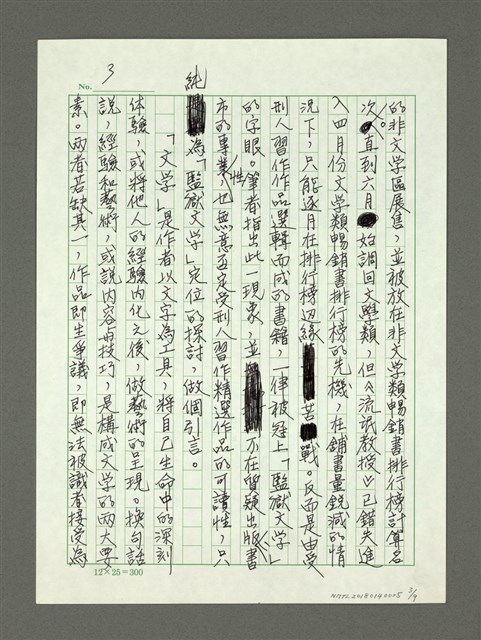 No. 3
的非文学區展售，並被放在非文学類暢銷書排行榜計算名
次。直到六月始調回文學類，但《流氓教授》已錯失進
入四月份文学類暢銷書排行榜的先機，在鋪書量銳減的情
況下，只能逐月在排行榜邊緣苦戰。反而是由受
刑人習作作品選輯而成的書籍，一律被冠上「監獄文学」
的字眼。筆者指出此一現象，並不在質疑出版書
市的專業性，也無意否定受刑人習作精選作品的可讀性，只
純為「監獄文学」定位的探討，做個引言。
「文学」是作者以文字為工具，將自己生命中的深刻
体驗，或將他人的經驗內化之後，做藝術的呈現。換句話
說，經驗和藝術，或說內容与技巧，是構成文学的兩大要
素。兩者若缺其一，作品即生爭議，即無法被識者接受為
12×25=300
NMTL20180140005 3/9